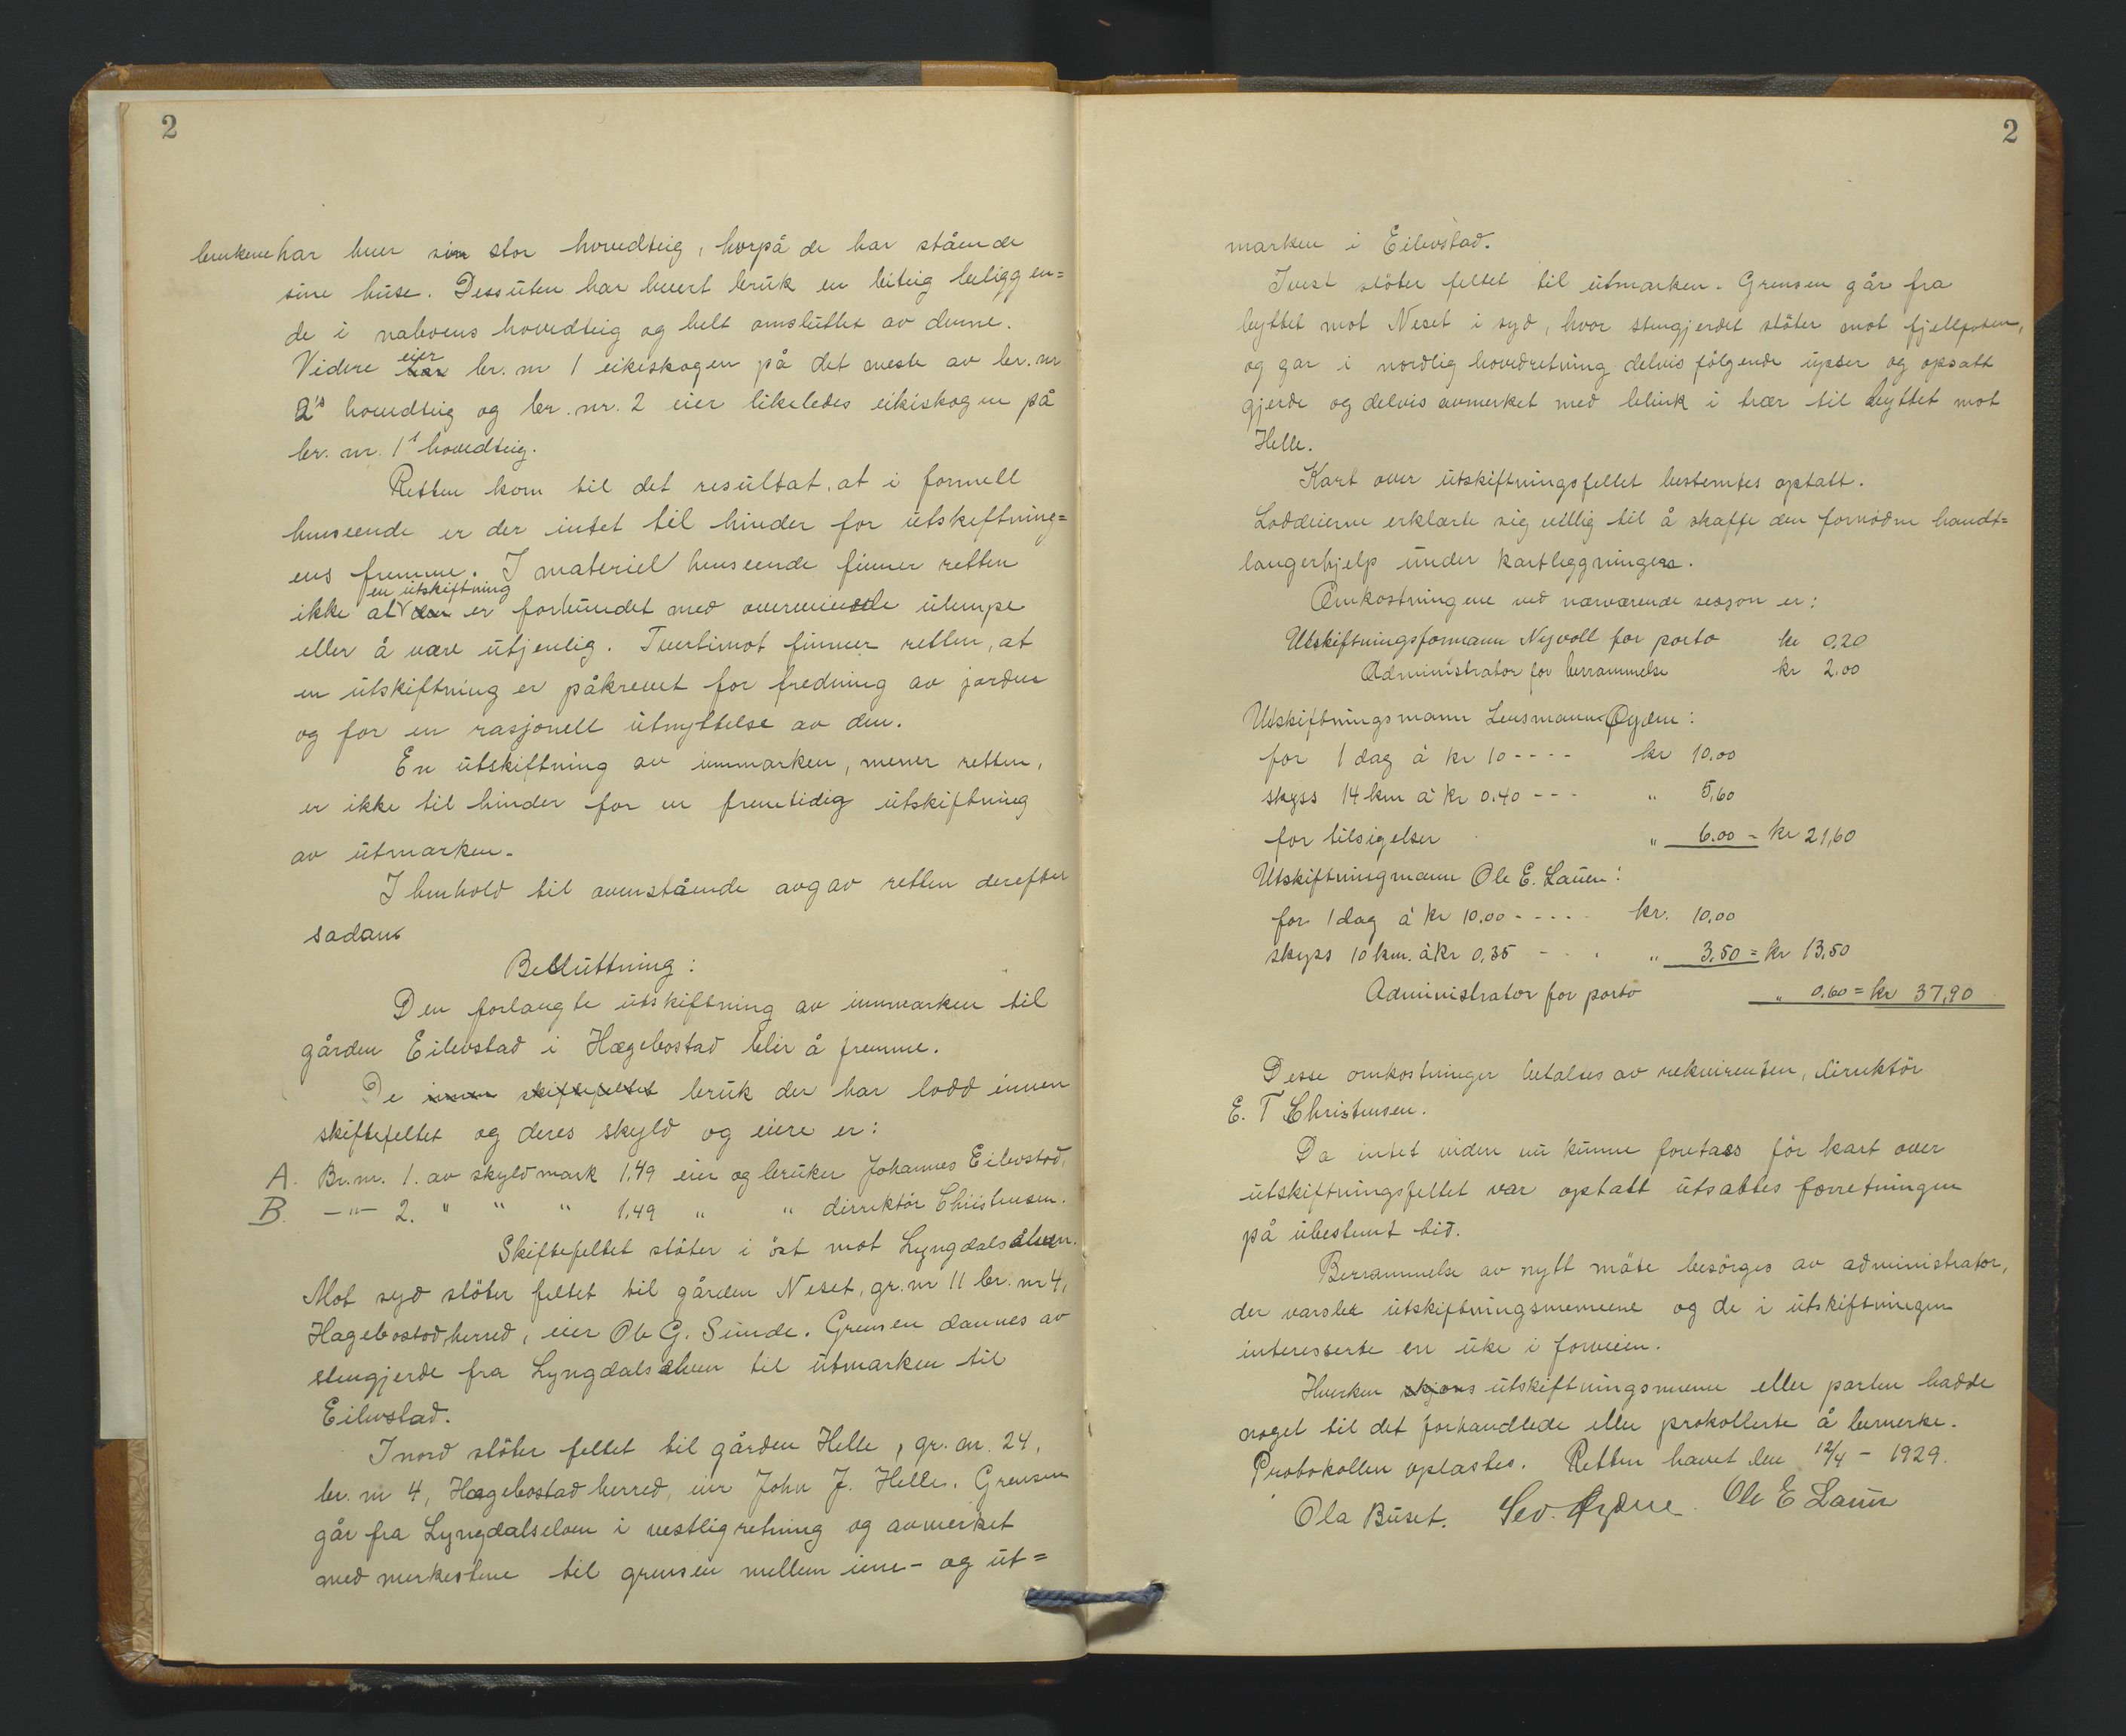 2
brukene har hver sin stor hovedteig, hvorpå de har stående
sine huse. Dessuten har hvert bruk en biteig beliggen=
de i naboens hovedteig og helt omsluttet av denne.
Videre eier br. nr 1 eikeskogen på det meste av br. nr.
2's hovedteig og br. nr. 2 eier likeledes eikeskogen på
br. nr. 1s hovedteig.
Retten kom til det resultat, at i formell
henseende er der intet til hinder for utskiftning=
ens fremme. I materiel henseende finner retten
ikke at en utskiftning er forbundet med overveiende ulempe
eller å være utjenlig. Tvertimot finner retten, at
en utskiftning er påkrevet for fredning av jorden
og for en rasjonell utnyttelse av den.
En utskiftning av innmarken, mener retten,
er ikke til hinder for en fremtidig utskiftning
av utmarken.
I henhold til ovenstående avgav retten derefter
sådan
Beslutning:
Den forlangte utskiftning av innmarken til
gården Eilevstad i Hægebostad blir å fremme.
De innen skiftefeltet bruk der har lodd innen
skiftefeltet og deres skyld og eiere er:
A. Br. nr. 1. av skyldmark 1.49 eier og bruker Johannes Eilevstad.
B. —"— 2. " " " 1.49 " " dirrektör Christensen.
Skiftefeltet stöter i öst mot Lyngdalselven.
Mot syd stöter feltet til gården Neset, gr. nr 11 br. nr 4,
Hægebostad herred, eier Ole G. Sunde. Grensen dannes av
stengjerde fra Lyngdalselven til utmarken til
Eilevstad.
I nord stöter feltet til gården Helle, gr. nr. 24,
br. nr 4, Hægebostad herred, eier John J. Helle. Grensen
går fra Lyngdalselven i vestlig retning og avmerket
med merkestene til grensen mellem inn- og ut=
2
marken i Eilevstad.
I vest stöter feltet til utmarken. Grensen går fra
byttet mot Neset i syd, hvor stengjerdet stöter mot fjellfoten,
og går i nordlig hovedretning delvis fölgende upser og opsatt
gjerde og delvis avmerket med blink i trær til byttet mot
Helle.
Kart over utskiftningsfeltet bestemtes optatt.
Loddeierne erklærte sig villig til å skaffe den fornödne handt=
langerhjelp under kartleggningen.
Omkostningene ved nærværende sesjon er:
Utskiftningsformann Nyvoll for porto kr 0,20
Administrator for berammelse kr 2.00
Utskiftningsmann Lensmann Öydne:
for 1 dag à kr 10 - - - - kr 10.00
skyss 14 km à kr 0.40 - - - " 5,60
for tilsigelser " 6.00 = kr 21,60
Utskiftningmann Ole E. Lauen:
for 1 dag à kr 10.00 - - - - - kr. 10,00
skyss 10 km. à kr 0,35 - - - " 3,50 = kr 13,50
Administrator for porto " 0,60 = kr 37,90
Desse omkostninger betales av rekvirenten, direktör
E. T Christensen.
Da intet videre nu kunne foretass för kart over
utskiftningsfeltet var optatt utsattes forretningen
på ubestemt tid.
Berrammelse av nytt möte besörges av administrator,
der varsler utskiftningsmennene og de i utskiftningen
interesserte en uke i forveien.
Hverken skjøns utskiftningsmenn eller parter hadde
noget til det forhandlede eller prokollerte å bemerke.
Protokollen oplæstes. Retten hævet den 12/4 - 1929.
Ola Buset. Sev. Öydne Ole E Lauen